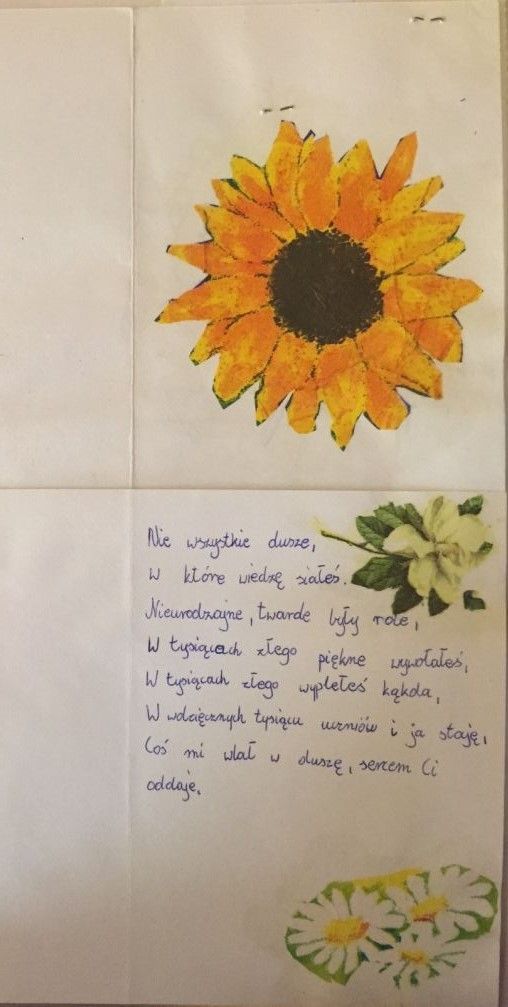 Nie wszystkie dusze,
w które wiedzę siałeś.
Nieurodzajne, twarde były role,
W tysiącach złego piękne wywołałeś,
W tysiącach złego wyplełeś kąkola,
W wdzięcznych tysiącu uczniów i ja staję,
Coś mi wlał w duszę, sercem Ci
oddaję.